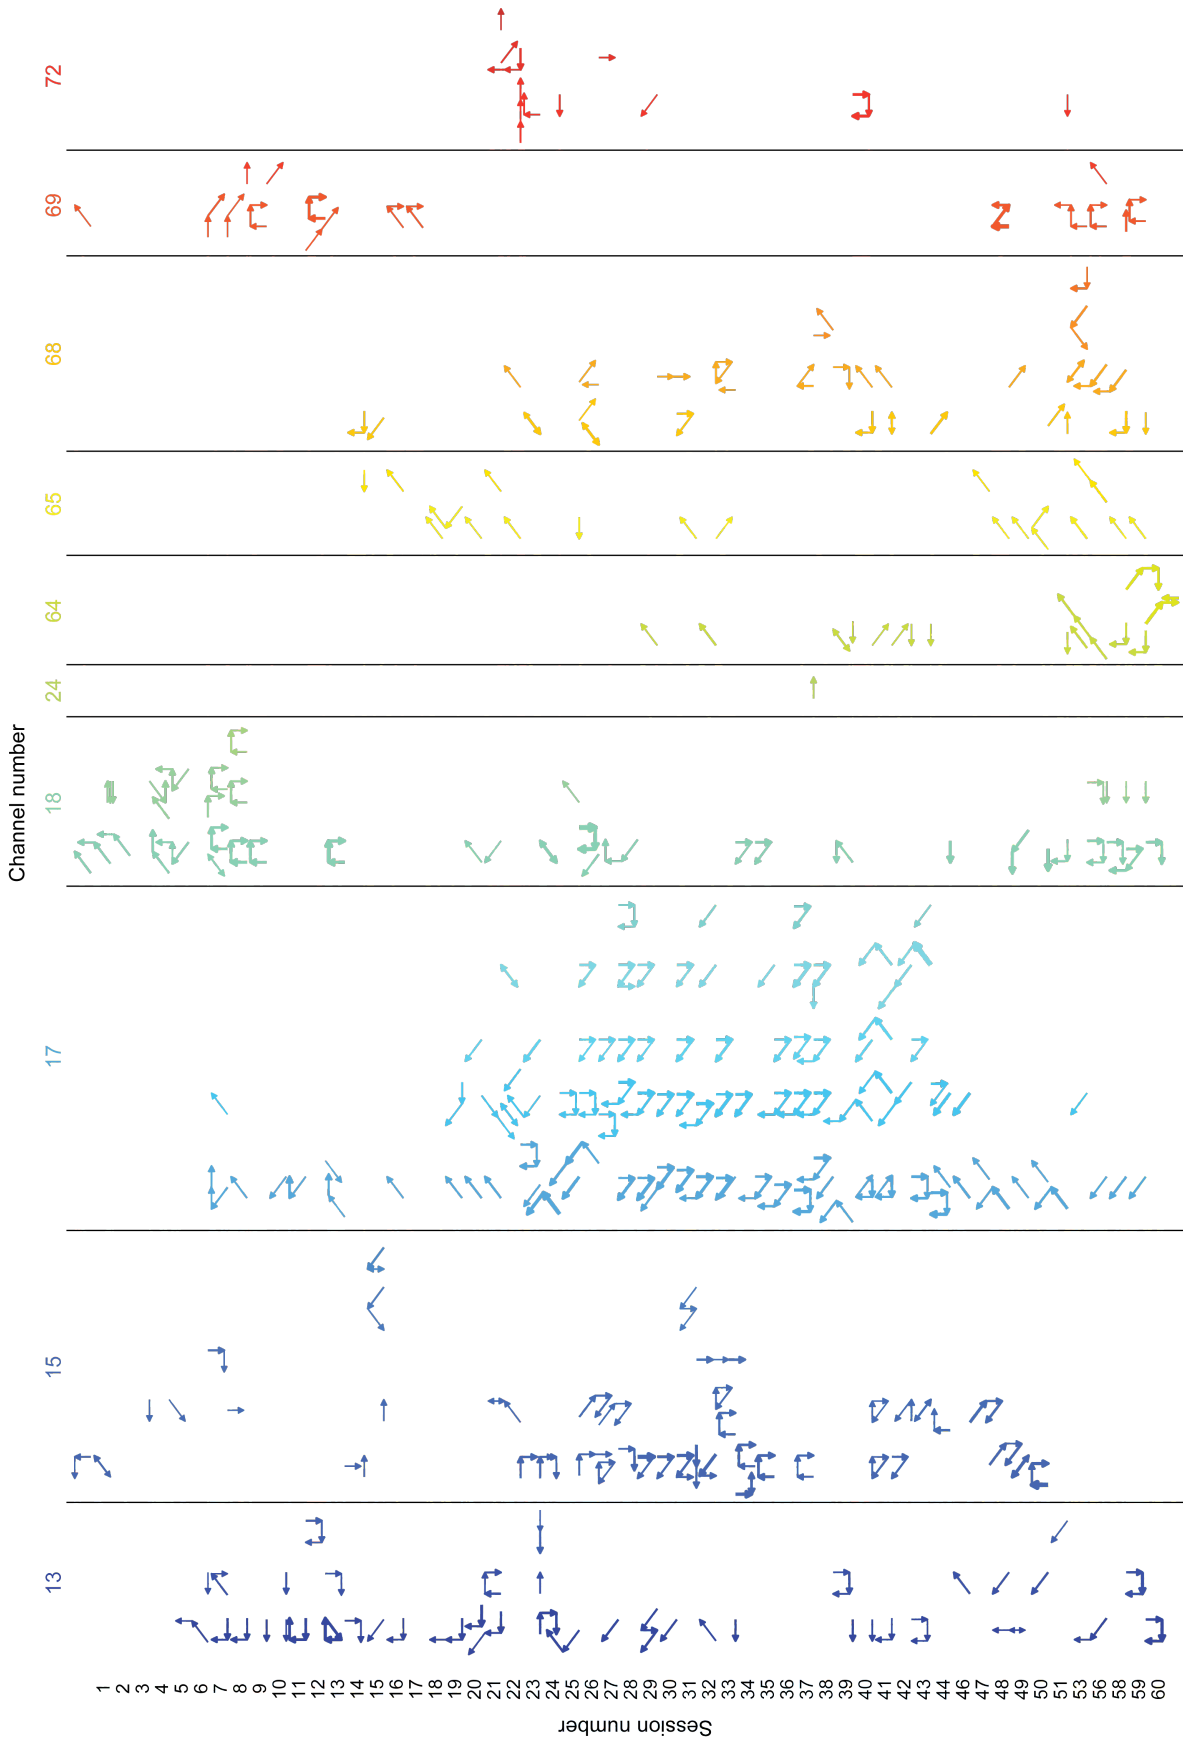 Channel number
13
15
17
18
24
64
65
68
69
72
1
2
3
4
5
6
7
8
9
10
11
12
13
14
15
16
17
18
19
20
21
22
23
24
25
26
27
28
29
30
31
32
33
34
35
36
37
38
39
40
41
42
43
44
46
47
48
49
50
51
53
56
58
59
60
Session number